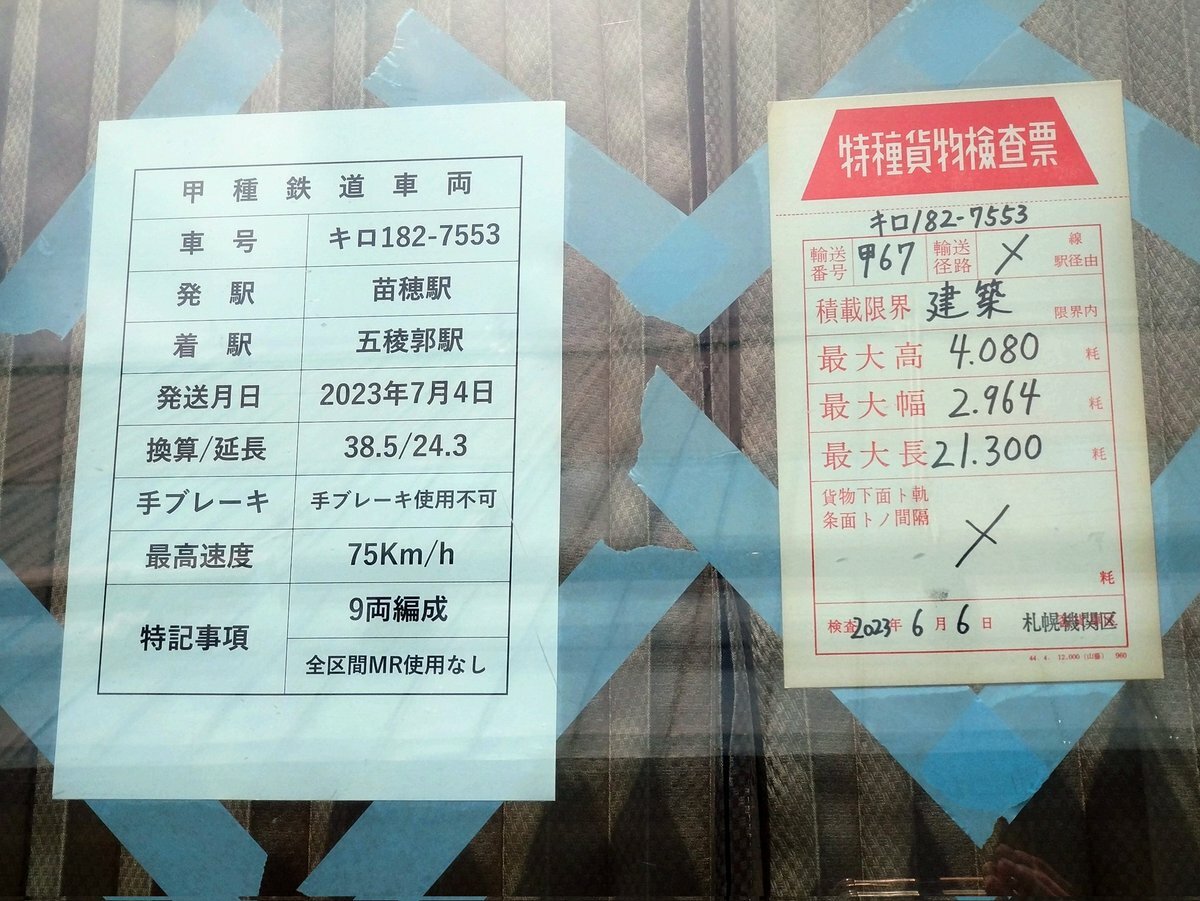 甲種鉄道車両
車号 キロ182-7553
発駅 苗穂駅
着駅 五稜郭駅
発送月日 2023年7月4日
換算/延長 38.5/24.3
手ブレーキ 手ブレーキ使用不可
最高速度 75Km/h
特記事項 9両編成
全区間MR使用なし
特種貨物検査票
キロ182-7553
輸送番号 甲67 輸送径路 × 線駅径由
積載限界 建築 限界内
最大高 4.080 粍
最大幅 2.964 粍
最大長 21.300 粍
貨物下面ト軌
条面トノ間隔
×
粍
検査 2023年6月6日 札幌機関区
44. 4. 12,000 (山藤) 960